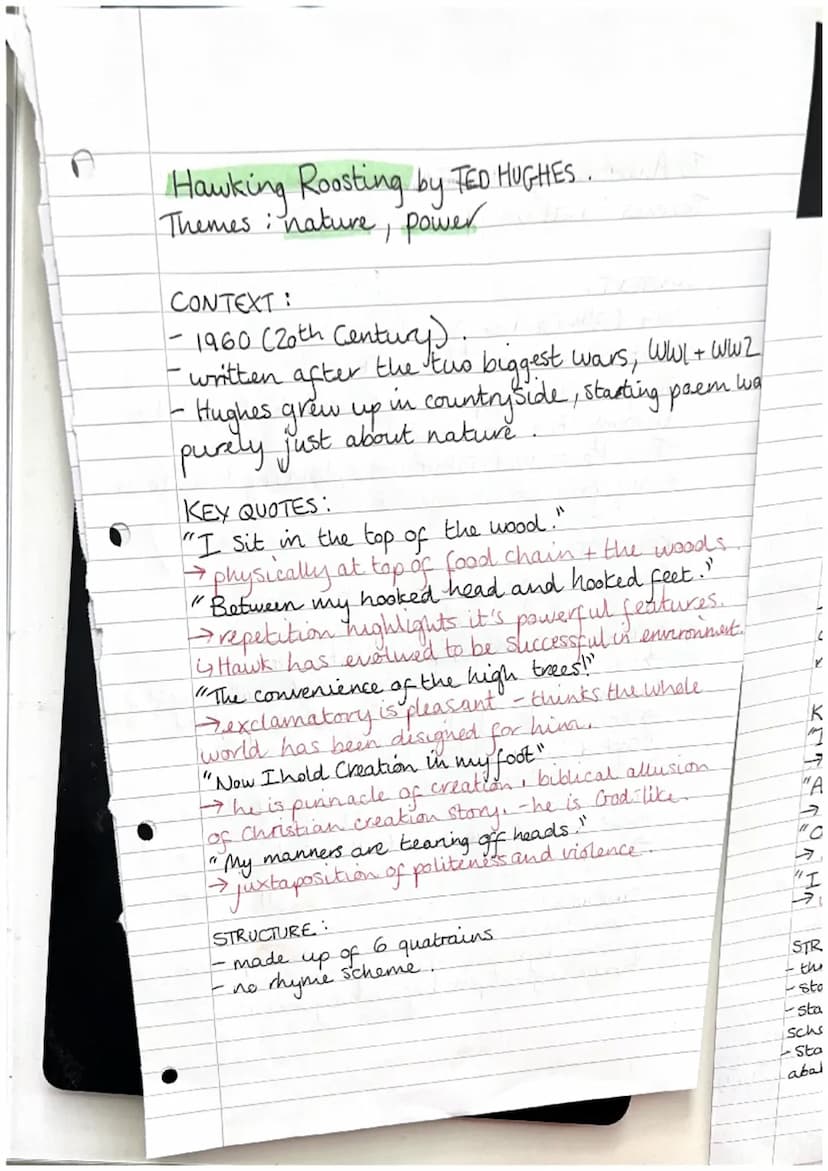 Hawking Roosting by TED HUGHES.
Themes : nature, power
CONTEXT :
- 1960 (20th Century).
- written after the two biggest wars, WW1 + WW2
- Hughes grew up in countryside, starting poem wa
purely just about nature.
KEY QUOTES:
"I sit in the top of the wood."
→ physically at top of food chain + the woods.
"Between my hooked head and hooked feet."
→ repetition highlights it's powerful features.
↳ Hawk has evolved to be successful in environment.
"The convenience of the high trees!"
→ exclamatory is pleasant - thinks the whole
world has been designed for him.
"Now I hold Creation in my foot"
→ he is pinnacle of creation, biblical allusion
of Christian creation story. - he is God-like.
"My manners are tearing off heads."
→ juxtaposition of politeness and violence.
STRUCTURE:
- made up of 6 quatrains
- no rhyme scheme.
K
"I
→
"A
→
"O
→
"I
→
STR
- th
- sto
- sta
sche
- Sta
abal